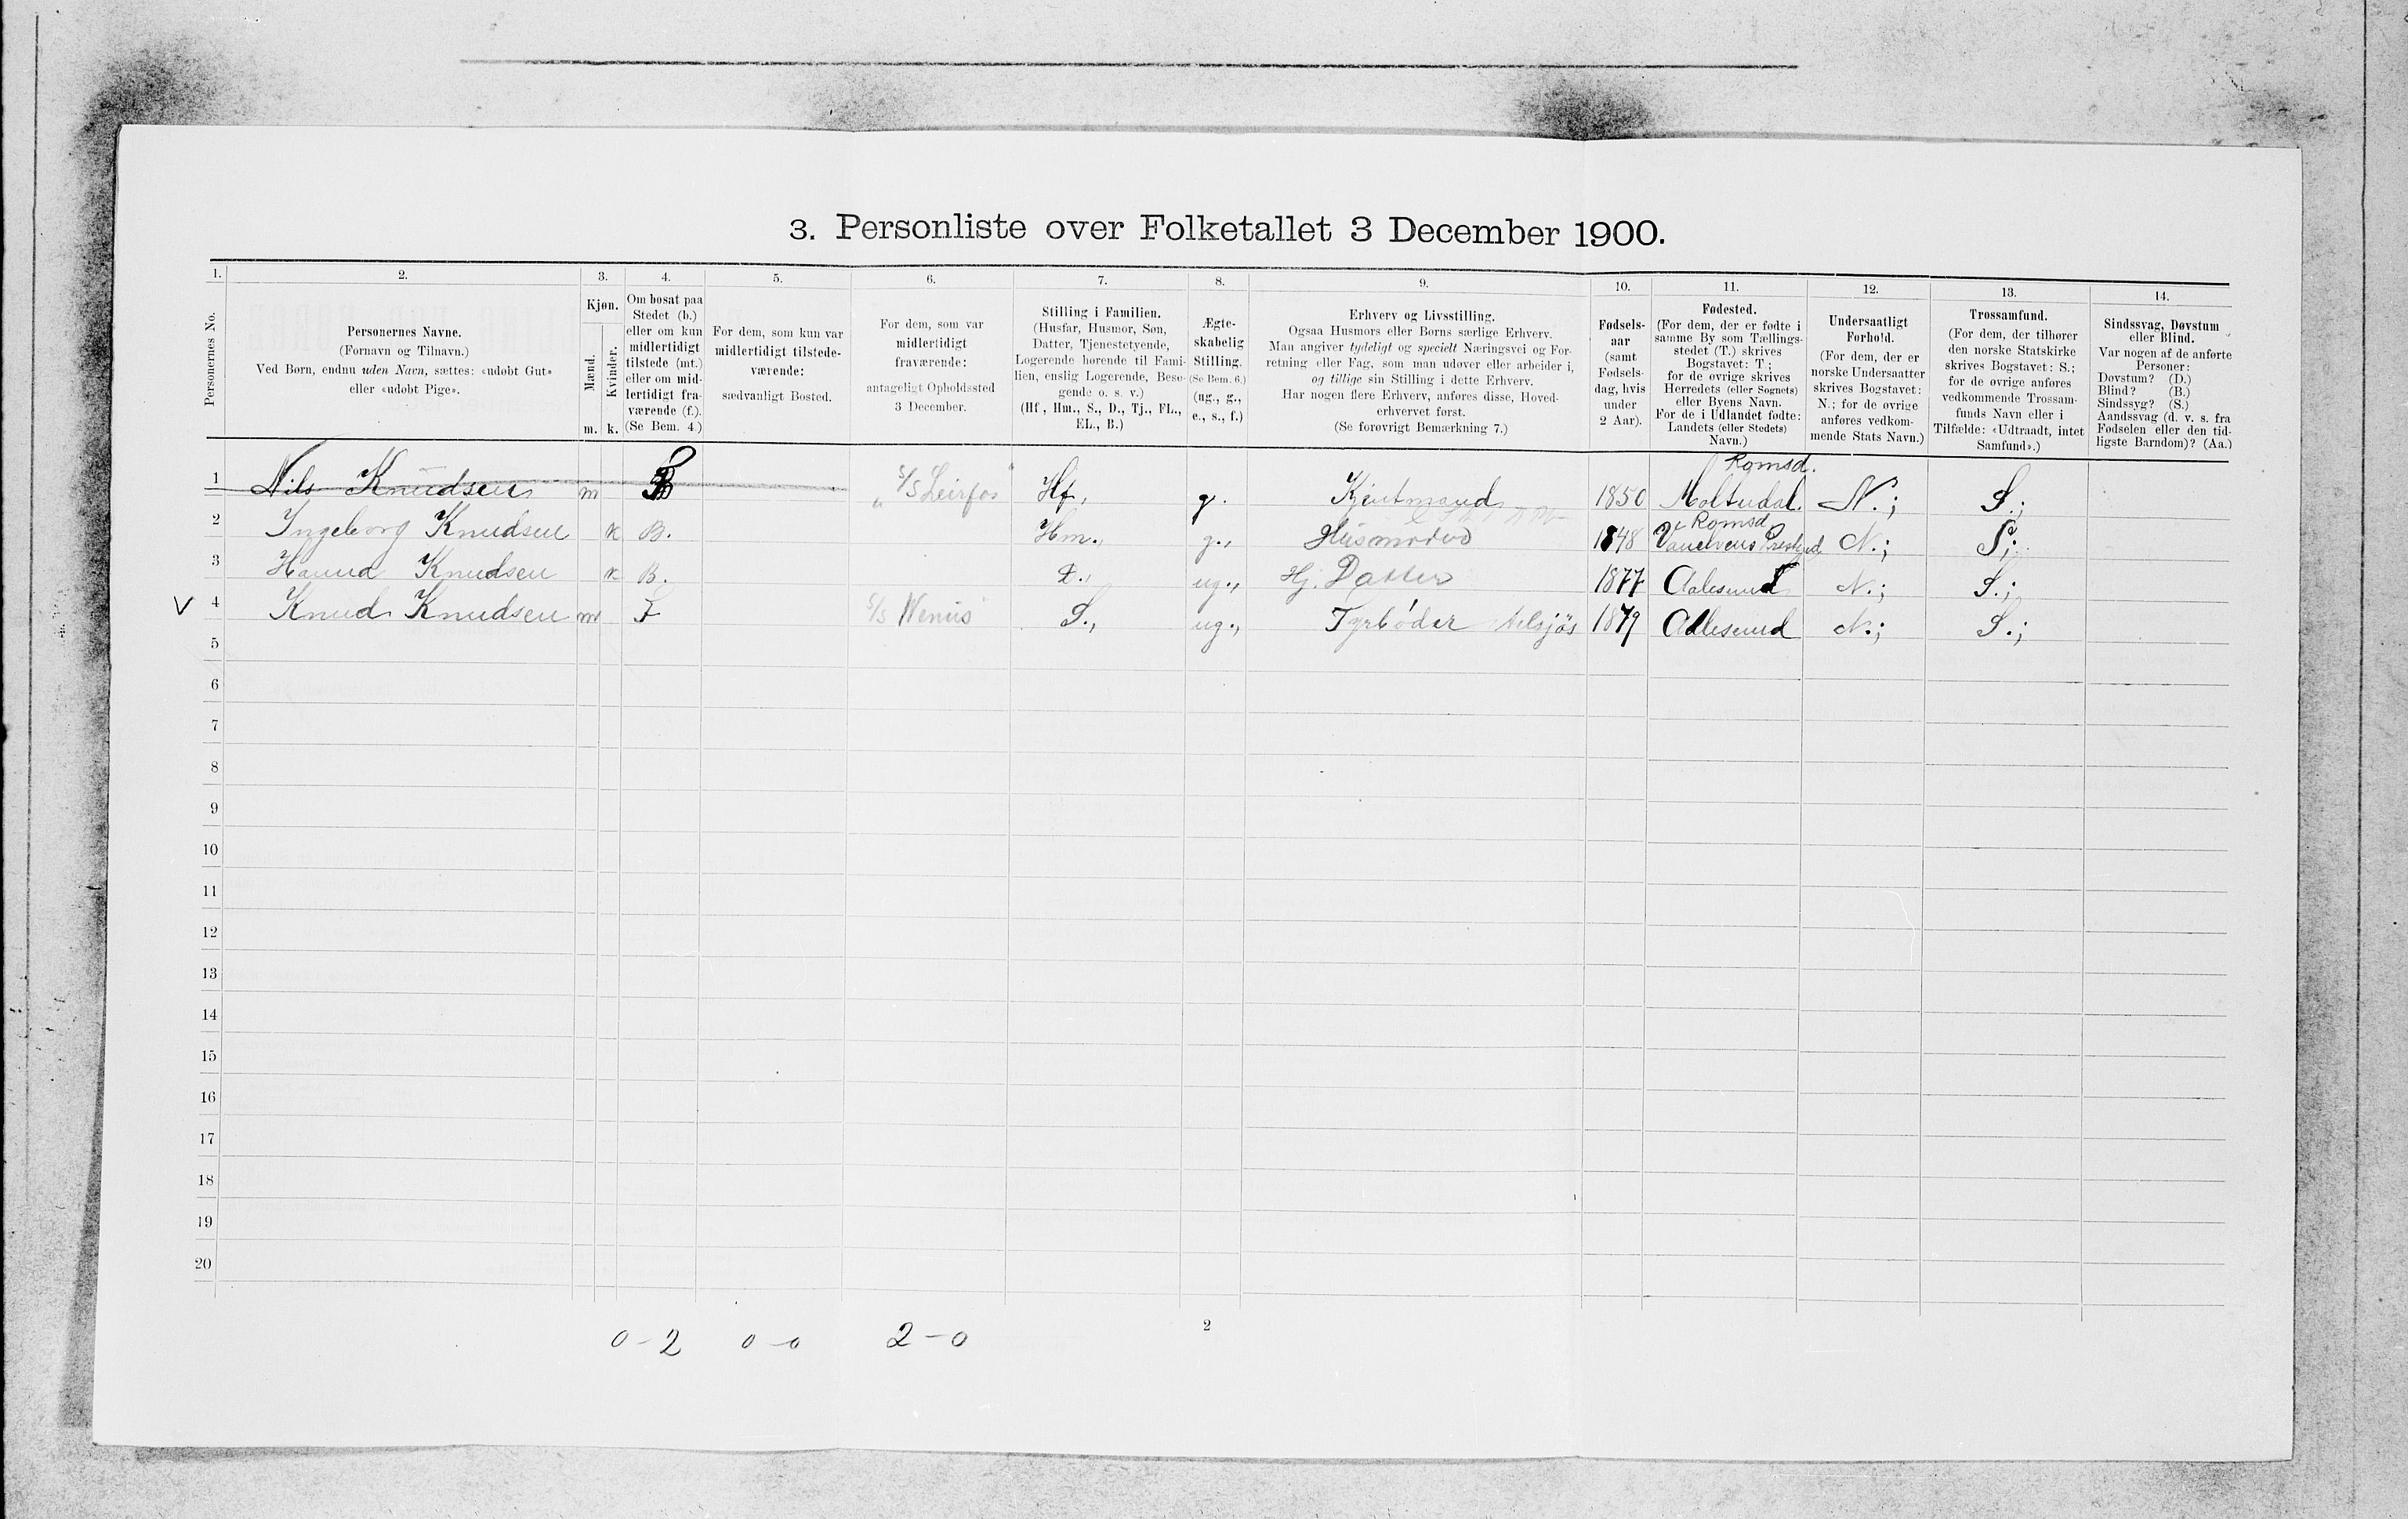 3. Personliste over Folketallet 3 December 1900.
1. 2. 3. 4. 5. 6. 7. 8. 9. 10. 11. 12. 13. 14.
Personernes No.
Personernes Navne.
(Fornavn og Tilnavn.)
Ved Børn, endnu uden Navn, sættes: «udøbt Gut»
eller «udøbt Pige».
Kjøn.
Mænd.
Kvinder.
m. k.
Om bosat paa
Stedet (b.)
eller om kun
midlertidigt
tilstede (mt.)
eller om mid-
lertidigt fra-
værende (f.).
(Se Bem. 4.)
For dem, som kun var
midlertidigt tilstede-
værende:
sædvanligt Bosted.
For dem, som var
midlertidigt
fraværende:
antageligt Opholdssted
3 December.
Stilling i Familien.
(Husfar, Husmor, Søn,
Datter, Tjenestetyende,
Logerende hørende til Fami-
lien, enslig Logerende, Besø-
gende o. s. v.)
(Hf., Hm., S., D., Tj., FL.,
EL., B.)
Ægte-
skabelig
Stilling.
(Se Bem. 6.)
(ug., g.,
e., s., f.)
Erhverv og Livsstilling.
Ogsaa Husmors eller Børns særlige Erhverv.
Man angiver tydeligt og specielt Næringsvei og For-
retning eller Fag, som man udøver eller arbeider i,
og tillige sin Stilling i dette Erhverv.
Har nogen flere Erhverv, anføres disse, Hoved-
erhvervet først.
(Se forøvrigt Bemærkning 7.)
Fødsels-
aar
(samt
Fødsels-
dag, hvis
under
2 Aar).
Fødested.
(For dem, der er fødte i
samme By som Tællings-
stedet (T.) skrives
Bogstavet: T.;
for de øvrige skrives
Herredets (eller Sognets)
eller Byens Navn.
For de i Udlandet fødte:
Landets (eller Stedets)
Navn.)
Undersaatligt
Forhold.
(For dem, der er
norske Undersaatter
skrives Bogstavet:
N.; for de øvrige
anføres vedkom-
mende Stats Navn.)
Trossamfund.
(For dem, der tilhører
den norske Statskirke
skrives Bogstavet: S.;
for de øvrige anføres
vedkommende Trossam-
funds Navn eller i
Tilfælde: «Udtraadt, intet
Samfund».)
Sindssvag, Døvstum
eller Blind.
Var nogen af de anførte
Personer:
Døvstum? (D.)
Blind? (B.)
Sindssyg? (S.)
Aandssvag (d. v. s. fra
Fødselen eller den tid-
ligste Barndom)? (Aa.)
Romsd.
1 Nils Knudsen m S/S Leirfos" Hf, g. Kjentmand 1850 Moltudal. N.; S.;
Romsd
2 Ingeborg Knudsen k B. Hm., g., Husmoder 1848 N.; S;
3 Hanna Knudsen k B. D., ug., Hj. Datter 1877 Aalesund N.; S.;
V 4 Knud Knudsen m F S/S Wenus" S., ug., Fyrbøder tilsjøs 1879 Aalesund N.; S.;
5
6
7
8
9
10
11
12
13
14
15
16
17
18
19
20
2
0-2 0-0 2-0